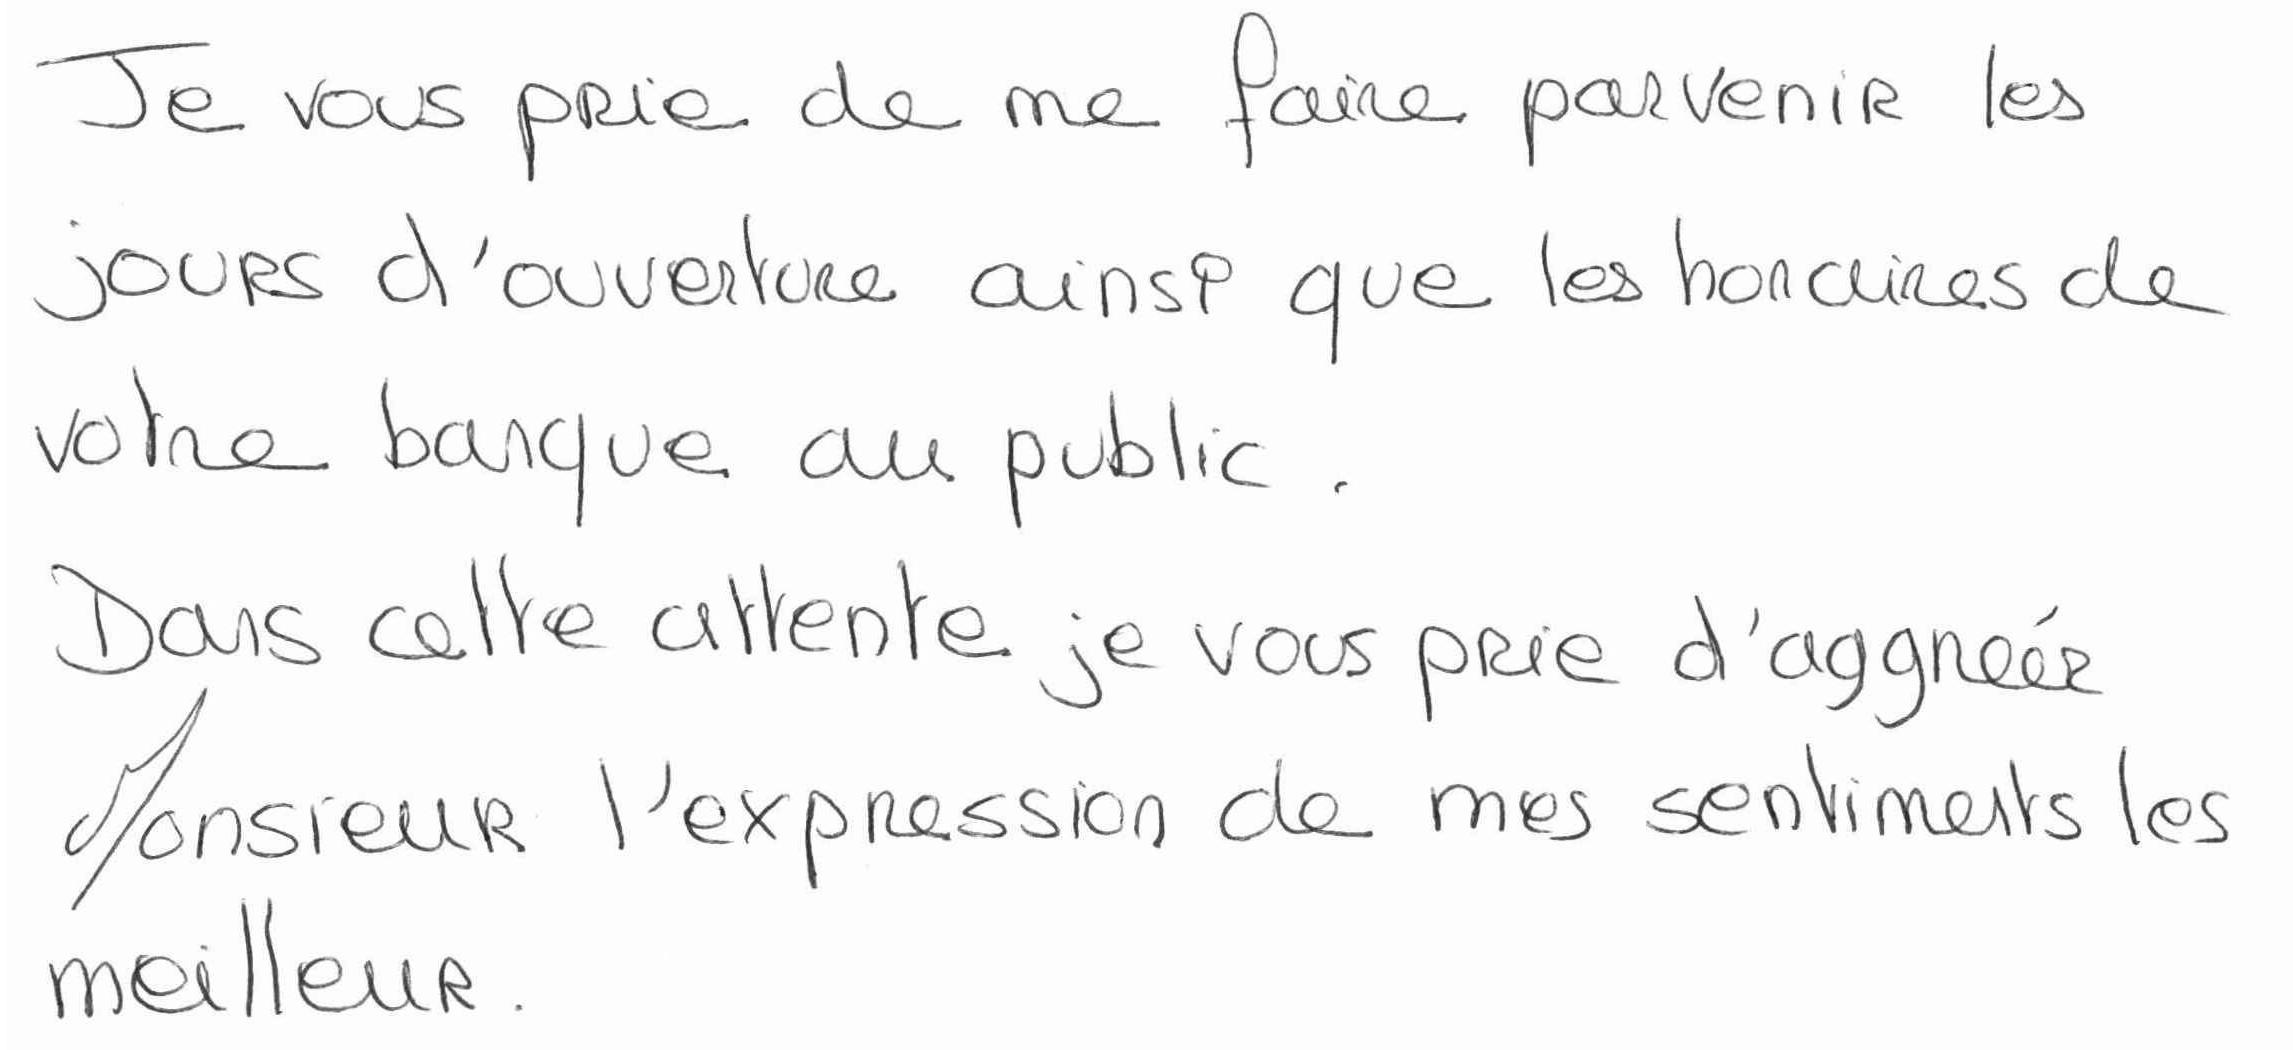 Je vous prie de me faire parvenir les
jours d'ouverture ainsi que les horaires de
votre banque au public.
Dans cette attente je vous prie d'aggréér
Monsieur l'expression de mes sentiments les
meilleur.